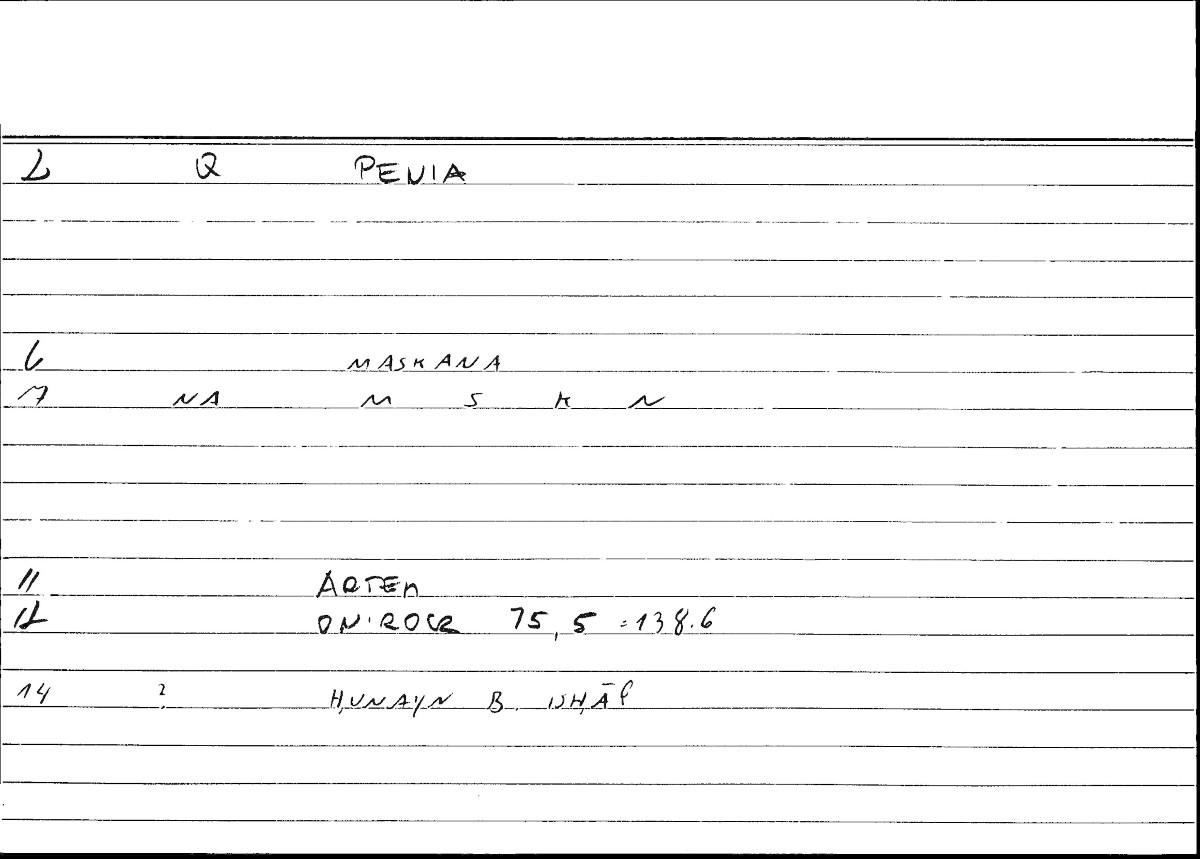 2 Q PENIA
6 MASKANA
7 NA M S K N
11 ARTEM
12 ONIROCR 75,5 = 138.6
14 ? ḤUNAYN B. ISḤĀQ